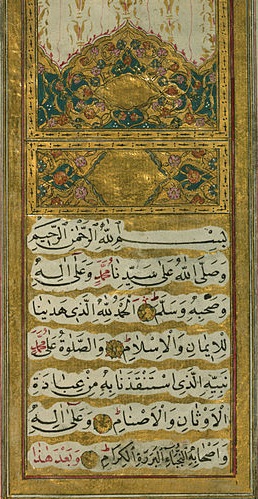 بِسْمِ اللهِ الرَّحْمٰنِ الرَّحِيمِ
وَصَلَّى اللهُ عَلٰى سَيِّدِنَا مُحَمَّدٍ وَعَلٰى آلِهِ
وَصَحْبِهِ وَسَلَّمَ الْحَمْدُ لِلّٰهِ الَّذِى هَدٰينَا
لِلْاِيمَانِ وَالْاِسْلَامِ وَالصَّلٰوةُ عَلٰى مُحَمَّدٍ
نَبِيِّهِ الَّذِى اسْتَنْقَذَنَا بِهِ مِنْ عِبَادَةِ
الْاَوْثَانِ وَالْاَصْنَامِ وَعَلٰى آلِهِ
وَاَصْحَابِهِ النُّجَبَاءِ الْبَرَرَةِ الْكِرَامِ وَبَعْدَ هٰذَا